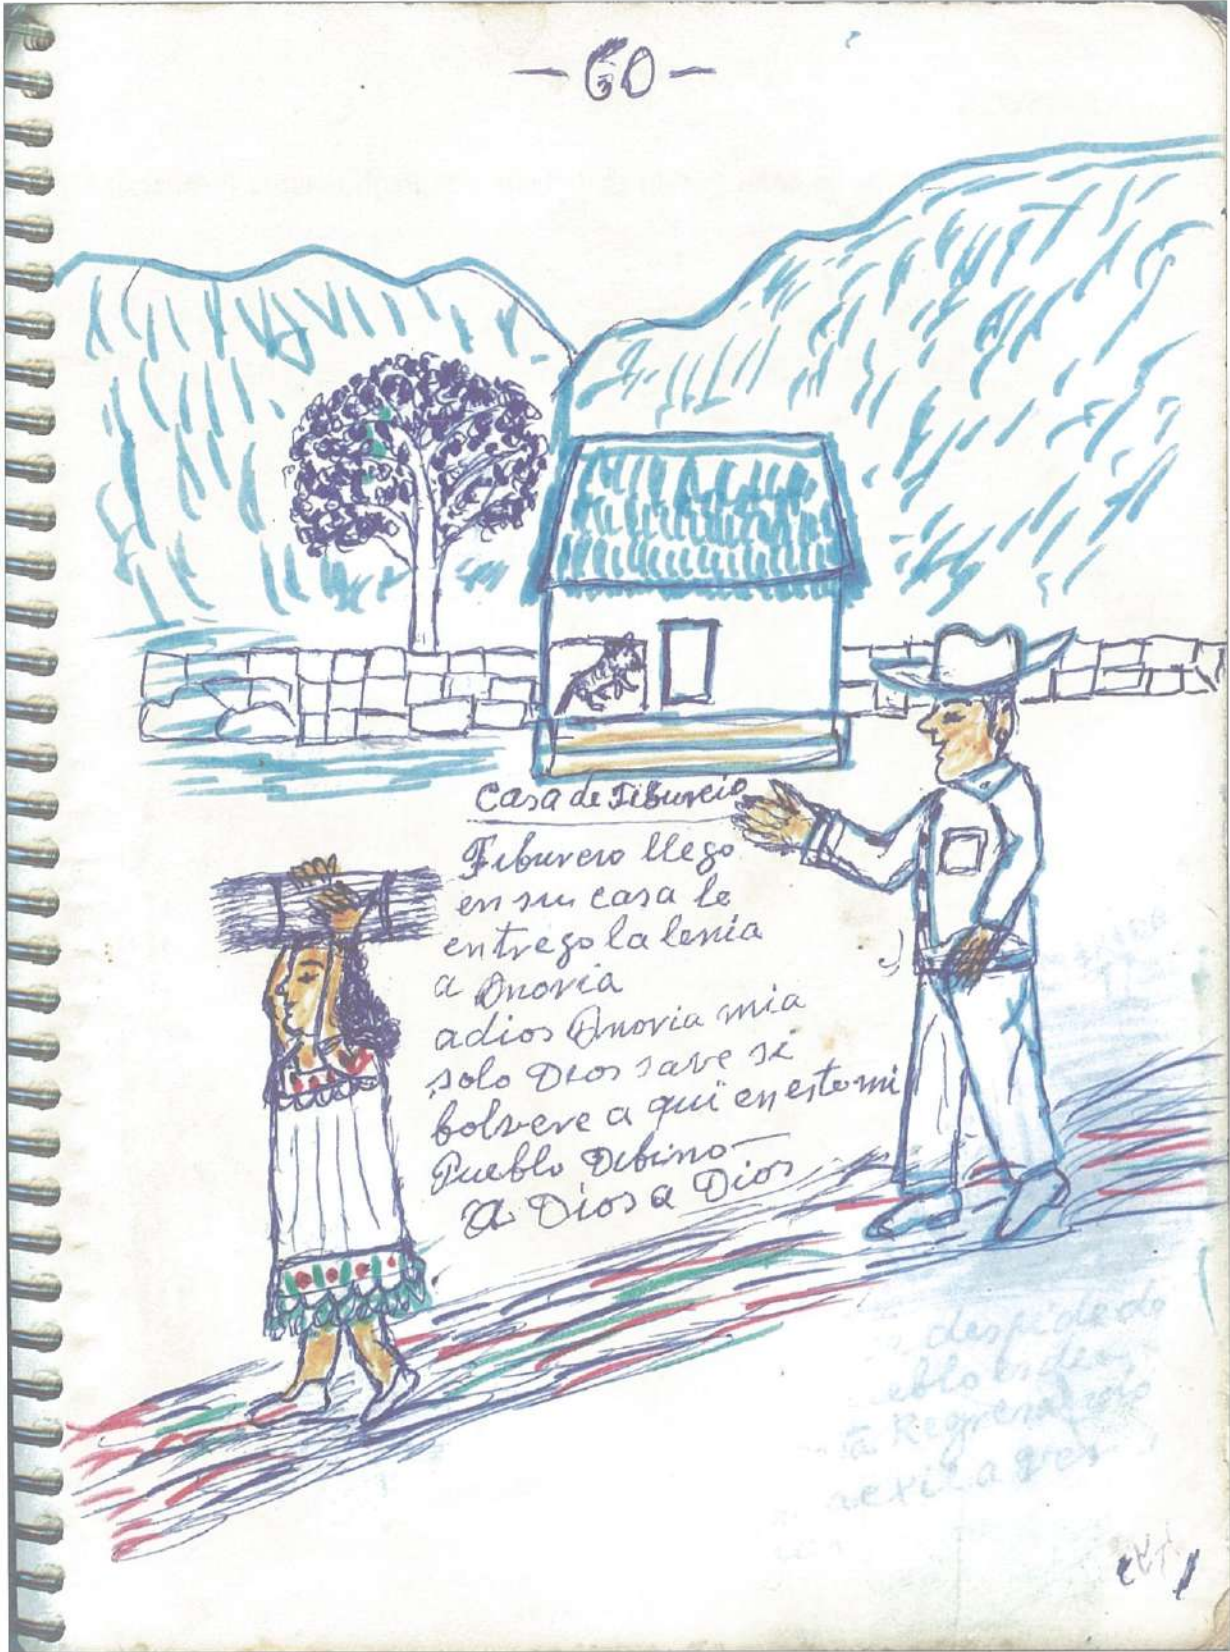 - 60 -
Casa de Tiburcio
Tiburcio llego
en su casa le
entrego la lenia
a Onoria
adios Onoria mia
solo Dios save si
bolvere a qui en esto mi
Pueblo Debino
a Dios a Dios
despide de